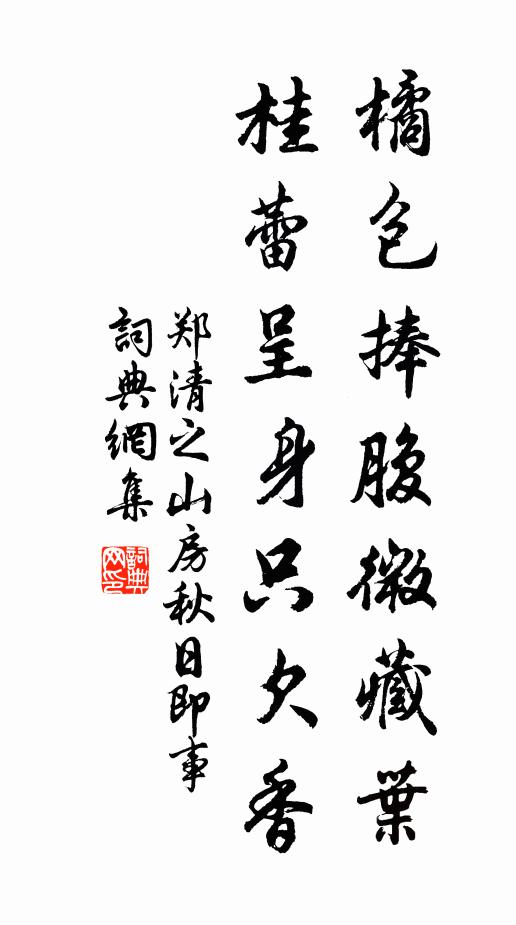 橘包捧腹微藏葉
桂蕾呈身只欠香
郑清之山房秋日即事
詞典網集
詞典网印